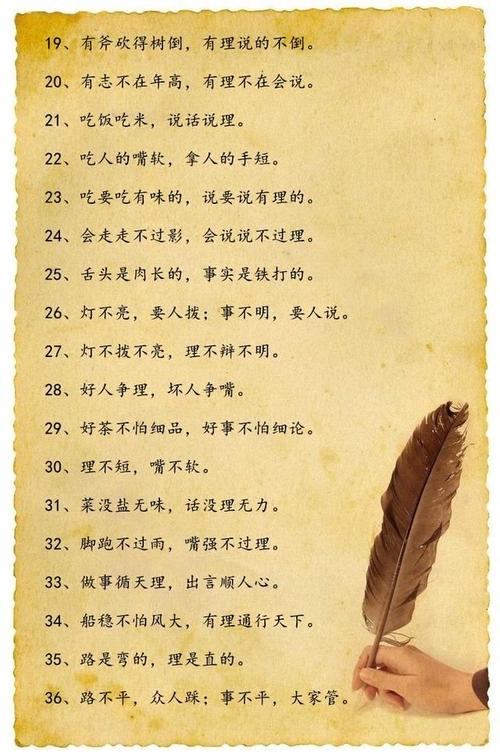 19、有斧砍得树倒，有理说的不倒。
20、有志不在年高，有理不在会说。
21、吃饭吃米，说话说理。
22、吃人的嘴软，拿人的手短。
23、吃要吃有味的，说要说有理的。
24、会走走不过影，会说说不过理。
25、舌头是肉长的，事实是铁打的。
26、灯不亮，要人拨；事不明，要人说。
27、灯不拨不亮，理不辩不明。
28、好人争理，坏人争嘴。
29、好茶不怕细品，好事不怕细论。
30、理不短，嘴不软。
31、菜没盐无味，话没理无力。
32、脚跑不过雨，嘴强不过理。
33、做事循天理，出言顺人心。
34、船稳不怕风大，有理通行天下。
35、路是弯的，理是直的。
36、路不平，众人踩；事不平，大家管。